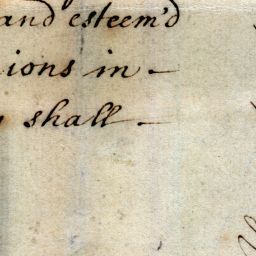 and esteem'd
ions in -
shall -